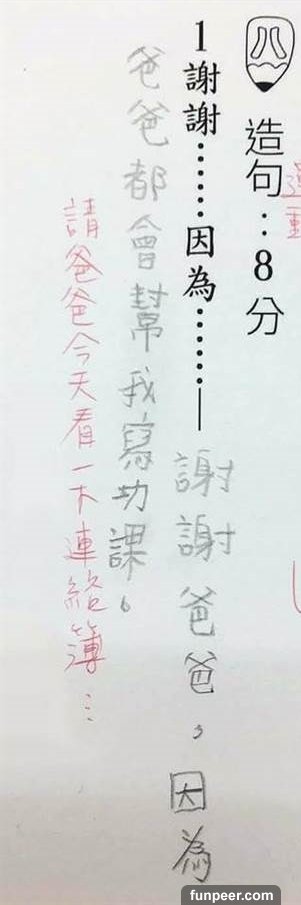 八
造句：8分
1 謝謝……因為……—謝謝爸爸，因為
爸爸都會幫我寫功課。
請爸爸今天看一下連絡簿…
funpeer.com